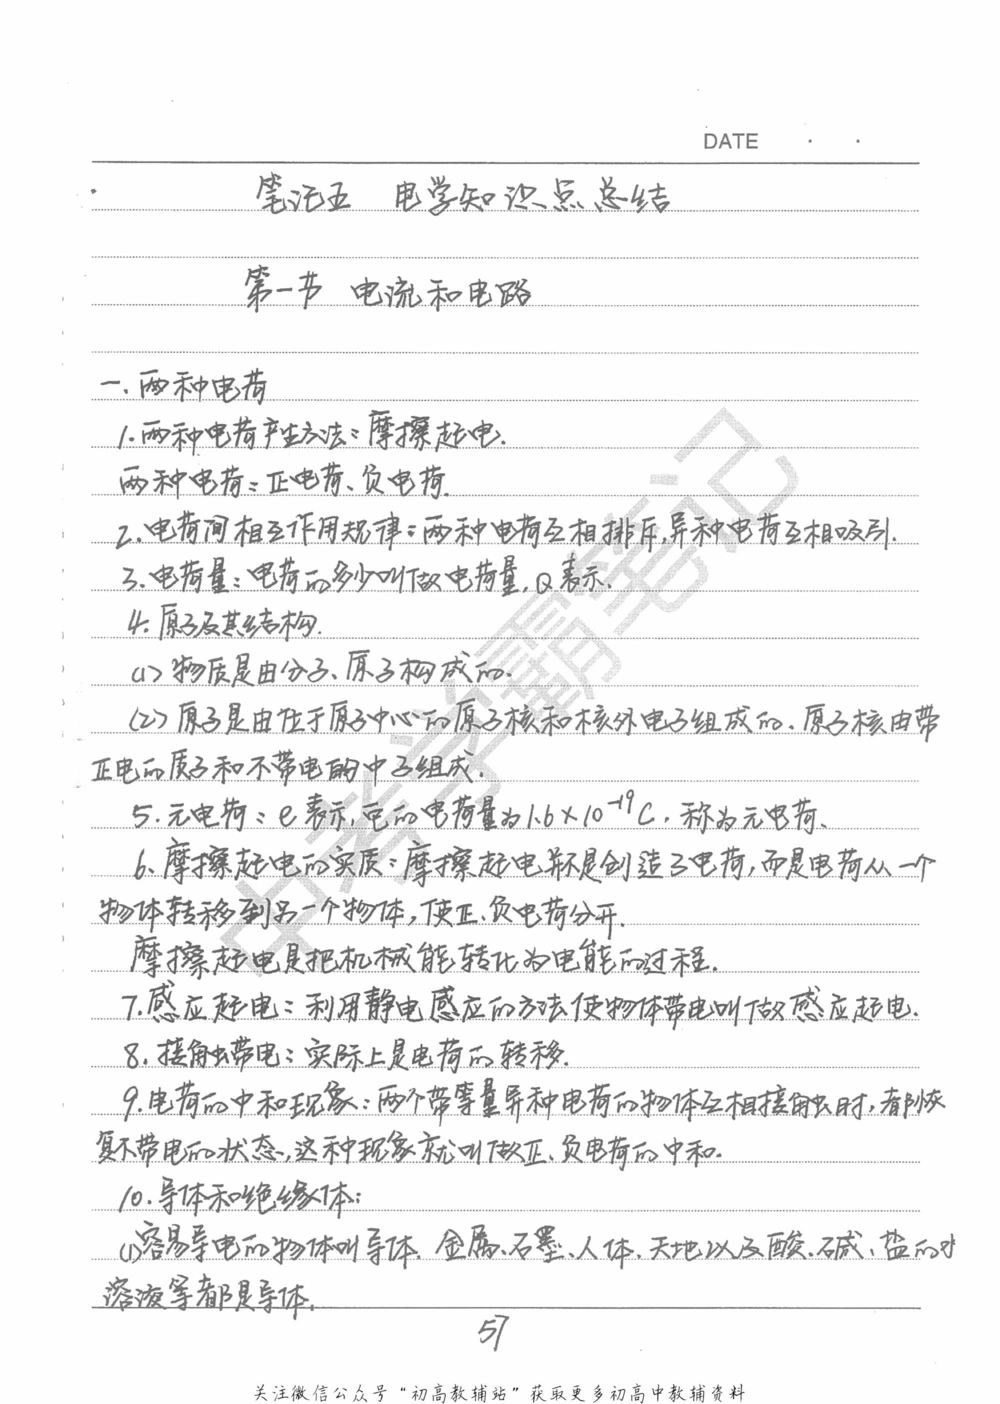 DATE · ·
笔记五 电学知识点总结
第一节 电流和电路
一.两种电荷
1.两种电荷产生方法:摩擦起电.
两种电荷:正电荷、负电荷.
2.电荷间相互作用规律:两种电荷互相排斥,异种电荷互相吸引.
3.电荷量:电荷的多少叫做电荷量,Q表示.
4.原子及其结构.
(1)物质是由分子、原子构成的.
(2)原子是由位于原子中心的原子核和核外电子组成的.原子核由带
正电的质子和不带电的中子组成.
5.元电荷:e表示,它的电荷量为1.6×10⁻¹⁹C,称为元电荷、
6.摩擦起电的实质:摩擦起电并不是创造了电荷,而是电荷从一个
物体转移到另一个物体,使正、负电荷分开.
摩擦起电是把机械能转化为电能的过程.
7.感应起电:利用静电感应的方法使物体带电叫做感应起电.
8.接触带电:实际上是电荷的转移.
9.电荷的中和现象:两个带等量异种电荷的物体互相接触时,都恢
复不带电的状态,这种现象就叫做正、负电荷的中和.
10.导体和绝缘体:
(1)容易导电的物体叫导体.金属、石墨、人体、天地以及酸、碱、盐的水
溶液等都是导体.
57
关注微信公众号“初高教辅站”获取更多初高中教辅资料
中考学霸笔记